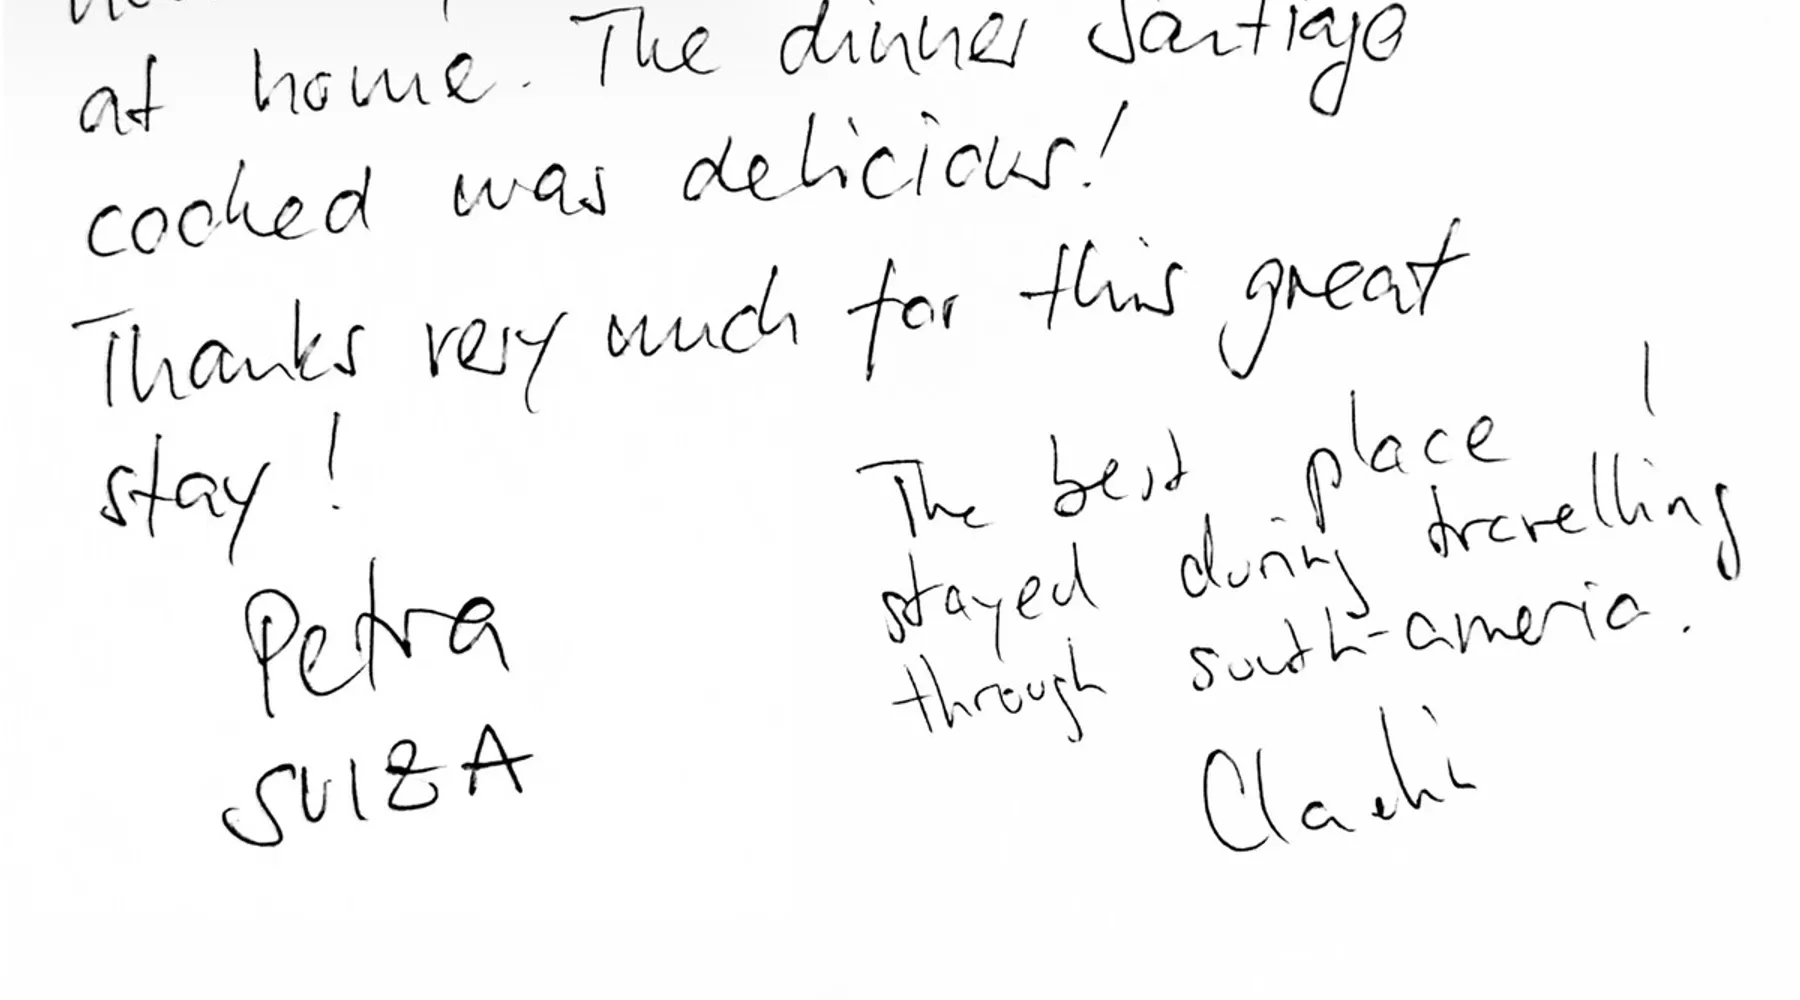 at home. The dinner Santiago
cooked was delicious!
Thanks very much for this great
stay!
Petra
SUIZA
The best place I
stayed during travelling
through south-america.